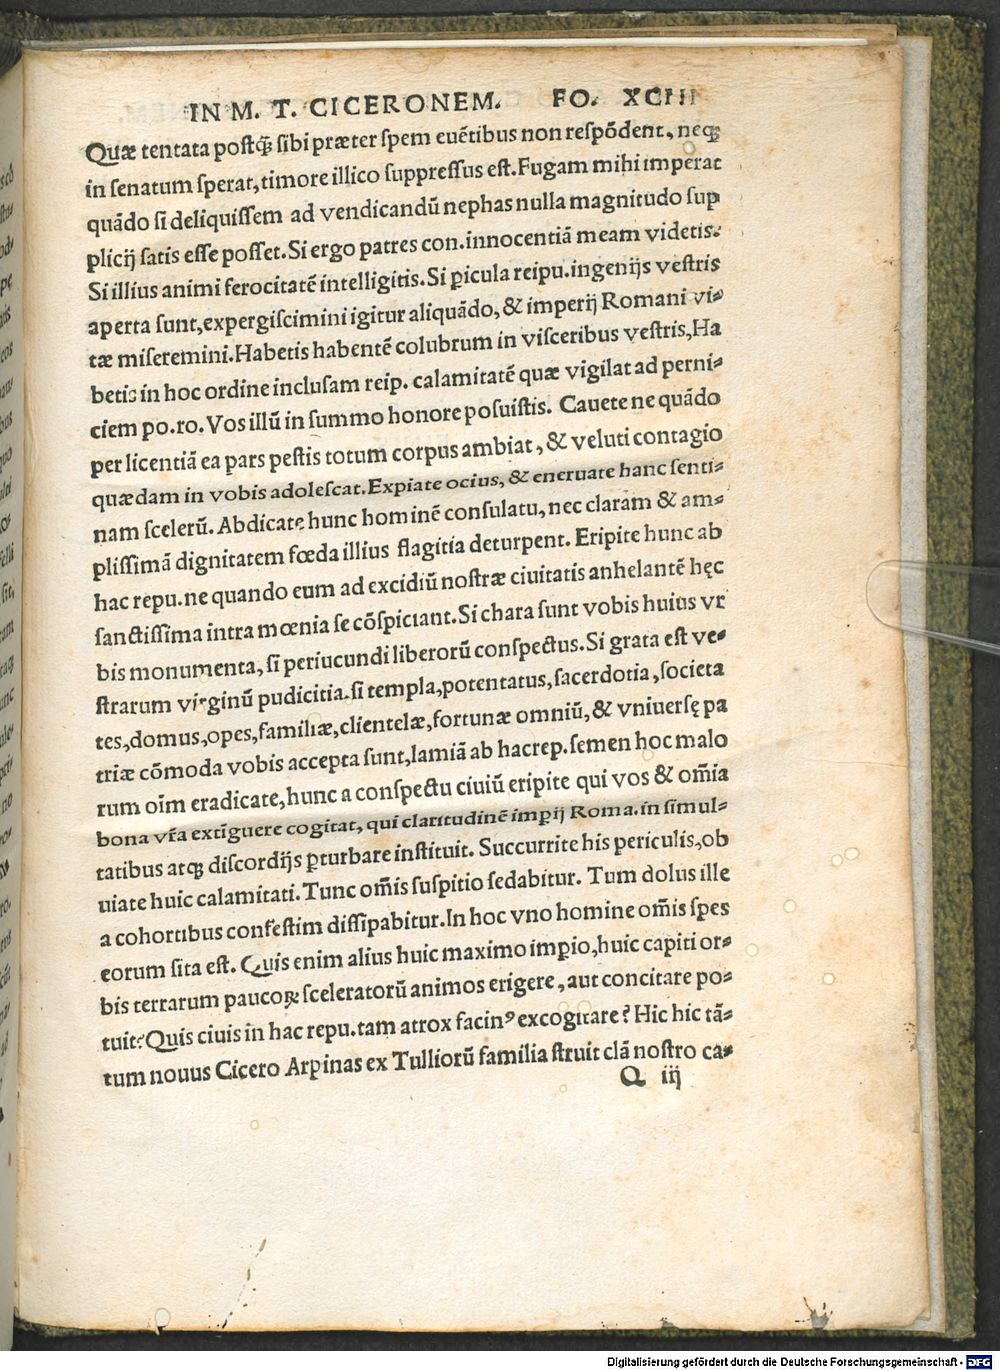 IN M. T. CICERONEM. FO. XCIII
Quæ tentata postꝙ̃ sibi præter spem euẽtibus non respõdent, neqꝫ
in senatum sperat, timore illico suppressus est. Fugam mihi imperat
quãdo si deliquissem ad vendicandũ nephas nulla magnitudo sup
plicij satis esse posset. Si ergo patres con. innocentiã meam videtis.
Si illius animi ferocitatẽ intelligitis. Si ꝑicula reipu. ingenijs vestris
aperta sunt, expergiscimini igitur aliquãdo, & imperij Romani vi⸗
tæ miseremini. Habetis habentẽ colubrum in visceribus vestris, Ha
betis in hoc ordine inclusam reip. calamitatẽ quæ vigilat ad perni⸗
ciem po. ro. Vos illũ in summo honore posuistis. Cauete ne quãdo
per licentiã ea pars pestis totum corpus ambiat, & veluti contagio
quædam in vobis adolescat. Expiate ocius, & eneruate hanc senti⸗
nam scelerũ. Abdicate hunc hominẽ consulatu, nec claram & am⸗
plissimã dignitatem fœda illius flagitia deturpent. Eripite hunc ab
hac repu. ne quando eum ad excidiũ nostræ ciuitatis anhelantẽ hęc
sanctissima intra mœnia se cõspiciant. Si chara sunt vobis huius vr
bis monumenta, si periucundi liberorũ conspectus. Si grata est ve⸗
strarum virginũ pudicitia. si templa, potentatus, sacerdotia, societa
tes, domus, opes, familiæ, clientelæ, fortunæ omniũ, & vniuersę pa
triæ cõmoda vobis accepta sunt, lamiã ab hac rep. semen hoc malo
rum oĩm eradicate, hunc a conspectu ciuiũ eripite qui vos & om̃ia
bona vr̃a extiguere cogitat, qui claritudinẽ imꝑij Roma. in simul⸗
tatibus atqꝫ discordijs ꝑturbare instituit. Succurrite his periculis, ob
uiate huic calamitati. Tunc om̃is suspitio sedabitur. Tum dolus ille
a cohortibus confestim dissipabitur. In hoc vno homine om̃is spes
eorum sita est. Quis enim alius huic maximo imꝑio, huic capiti or⸗
bis terrarum paucoꝝ sceleratorũ animos erigere, aut concitare po⸗
tuit? Quis ciuis in hac repu. tam atrox facinꝰ excogitare? Hic hic tã⸗
tum nouus Cicero Arpinas ex Tulliorũ familia struit clã nostro ca⸗
Q iij
Digitalisierung gefördert durch die Deutsche Forschungsgemeinschaft - DFG